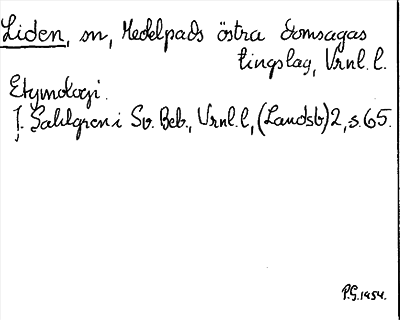 Liden, sn, Medelpads östra domsagas
tingslag, Vrnl. l.
Etymologi.
J. Sahlgren i Sv. Beb., Vrnl. l, (Landsb) 2, s. 65.
P.G. 1954.